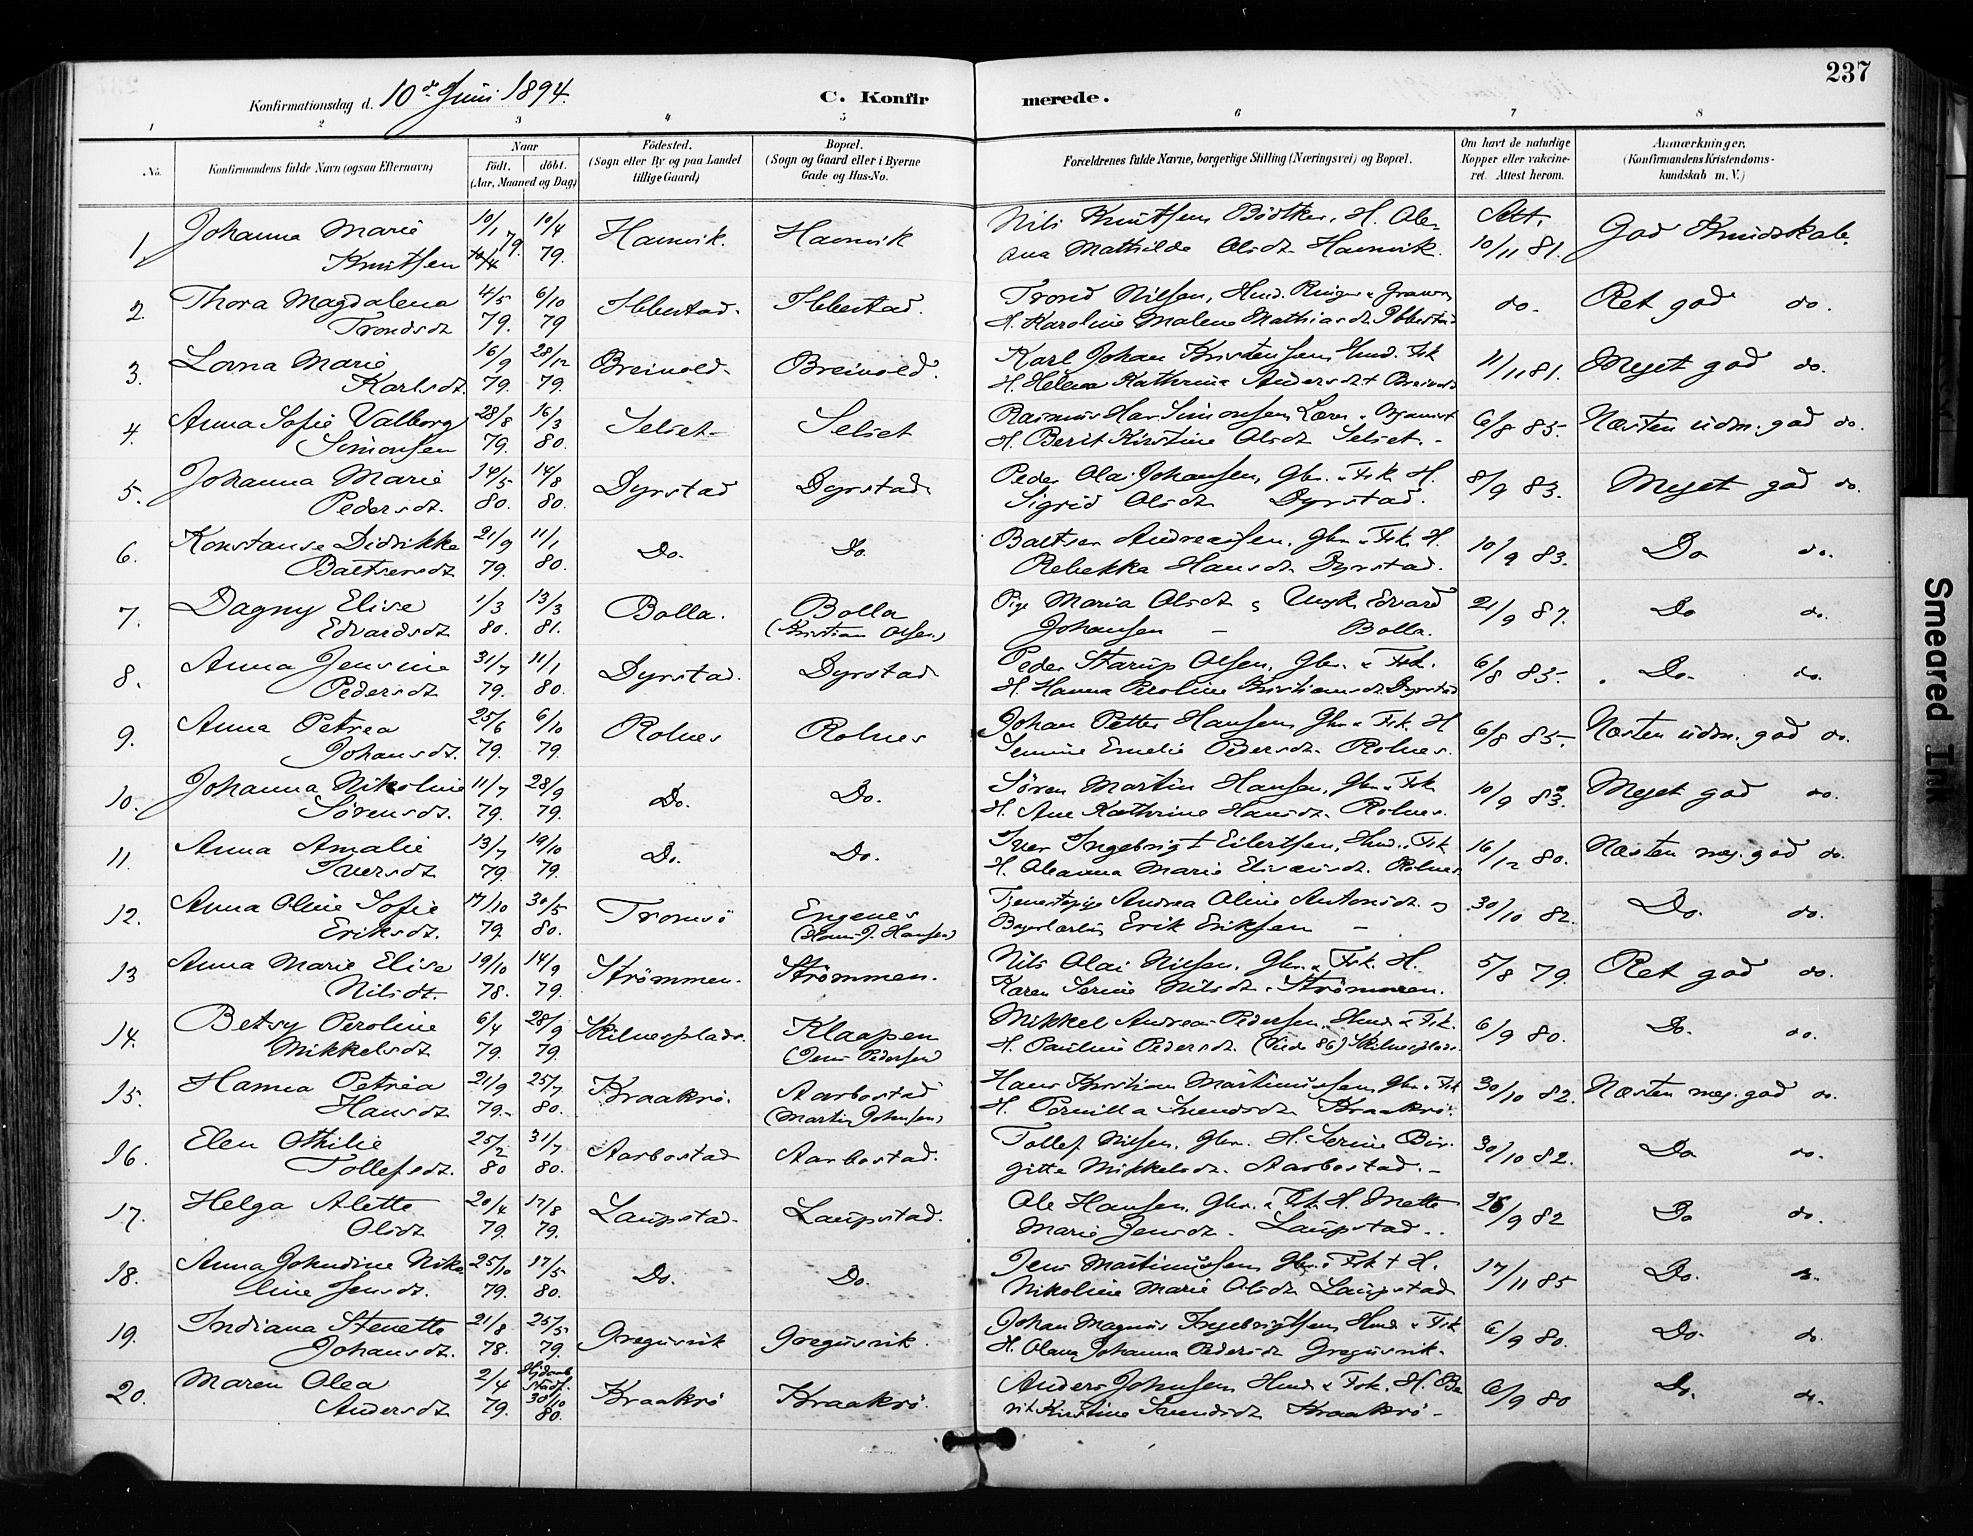 237
Konfirmationsdag d. 10de Juni 1894.
C. Konfirmerede.
1 2 3 4 5 6 7 8
No.
Konfirmandens fulde Navn (ogsaa Efternavn)
Naar
födt. döbt.
(Aar, Maaned og Dag)
Födested.
(Sogn eller By og paa Landet
tillige Gaard)
Bopæl.
(Sogn og Gaard eller i Byerne
Gade og Hus-No.
Forældrenes fulde Navne, borgerlige Stilling (Næringsvei) og Bopæl.
Om havt de naturlige
Kopper eller vakcine-
ret. Attest herom.
Anmærkninger,
(Konfirmandens Kristendoms-
kundskab m. V.)
1. Johanna Marie 10/1 79. 10/4 Havnvik. Havnvik Nils Knutsen Bødtker, H. Ole- Att. God Kundskab.
Knutsen 79. ana Mathilde Olsdt. Havnvik. 10/11 81.
2. Thora Magdalena 4/5 6/10 Ibbestad. Ibbestad. Trond Nilsen, Hmd. Ringer & Graver, do. Ret god do.
Trondsdt. 79. 79 H. Karoline Malene Mathiasdt. Ibbestad
3. Lovna Marie 16/9 28/12 Breivold. Breivold. Karl Johan Kristensen, Hmd. Fsk. 11/11 81. Meget god do.
Karlsdt. 79. 79. H. Helena Kathrina Andersdt. Breivold
4. Anna Sofie Valborg 28/8 16/3 Selset. Selset Rasmus Har. Simonsen, Lærer & Organist 6/8 85. Næsten udm. god do.
Simonsen 79. 80. H. Berit Kirstine Olsdt. Selset.
5. Johanna Marie 14/5 14/8 Dyrstad Dyrstad Peder Olai Johansen, Gbr. & Fsk. H. 8/9 83. Meget god do.
Pedersdt. 80. 80. Sigrid Olsdt. Dyrstad.
6. Konstanse Didrikke 21/9 11/1 Do. Do. Baltser Andreassen, Gbr. & Fsk. H. 10/9 83. Do do.
Baltsersdt. 79. 80. Rebekka Hansdt. Dyrstad.
7. Dagny Elise 1/3 13/3 Bolla. Bolla Pige Maria Olsdt. og Ungk. Edvard 21/9 87. Do do.
Edvardsdt. 80. 81. (Kristian Olsen) Johansen – Bolla.
8. Anna Jensine 31/7 11/1 Dyrstad. Dyrstad Peder Starup Olsen, Gbr. & Fsk. 6/8 83. Do. do.
Pedersdt. 79. 80. H. Hanna Peroline Kristiansdt. Dyrstad
9. Anna Petrea 25/6 6/10 Rolnes Rolnes Johan Petter Hansen, Gbr. & Fsk. H. 6/8 85. Næsten udm. god do.
Johansdt. 79. 79. Emelie Pedersdt. Rolnes.
10. Johanna Nikoline 11/7 28/9 Do. Do. Søren Martin Hansen, Gbr. & Fsk. 10/9 83. Meget god do.
Sørensdt. 79. 79. H. Ane Kathrine Hansdt. Rolnes.
11. Anna Amalie 13/7 19/10 Do. Do. Iver Ingebrigt Eilertsen, Hmd. & Fsk. 16/12 80. Næsten meg. god do.
Iversdt. 79. 79. H. Oleanna Marie Eliasdt. Rolnes
12. Anna Oline Sofie 17/10 30/5 Tromsö Engenes Tjenestepige Andrea Oline Antonsdt. og 30/10 82. Do. do.
Eriksdt. 79. 80. (Hans J. Hansen) Bagerlærling Erik Eriksen –
13 Anna Marie Elise 19/10 14/9 Strømmen. Strømmen. Nils Olai Nilsen, Gbr. & Fsk. H. 5/8 79. Ret god do.
Nilsdt. 78. 79. Karen Serine Nilsdt. Strømmen.
14. Betsy Peroline 6/4 28/9 Skilnesplads. Klaapen Mikkel Andreas Pedersen, Hmd. & Fsk. 6/9 80. Do. do.
Mikkelsdt. 79. 79. (Jens Pedersen) H. Pauline Pedersdt. (Side 86) Skilnesplads.
15. Hanna Petrea 21/9 25/7 Kraakrö. Aarbostad Hans Kristian Martinussen, Gbr. & Fsk 30/10 82. Næsten meg. god do.
Hansdt. 79. 80. (Martin Johnsen) H. Pernilla Svendsdt. Kraakrö.
16. Elen Othilie 25/2 31/7 Aarbostad Aarbostad. Tollef Nilsen, Gbr. H. Serine Bir- 30/10 82. Do do.
Tollefsdt. 80 80. gitte Mikkelsdt. Aarbostad.
17. Helga Alette 20/4 17/8 Laupstad. Laupstad. Ole Hansen, Gbr. & Fsk. H. Mette 26/9 82 Do do.
Olsdt. 79. 79. Marie Jensdt. Laupstad.
18. Anna Johndine Niko- 25/10 17/5 Do. Do. Jens Martinussen, Gbr. & Fsk † H. 17/11 85 Do. do.
line Jensdt. 79. 80. Nikoline Marie Olsdt. Laupstad
19. Indiana Stenette 21/8 25/5 Gregusvik Gregusvik. Johan Magnus Ingebrigtsen, Hmd. & Fsk 6/9 80. Do. do.
Johansdt. 78. 79. H. Olava Johanna Pedersdt. Gregusvik.
20. Maren Olea 2/4 Hjdøbt Stadf. Kraakrö Kraakrö. Anders Johnsen, Hmd. & Fsk. H. Be- 6/9 80 Do. do.
Andersdt. 79. 30/10 80. rit Kirstine Svendsdt. Kraakrö.
Smeared Ink